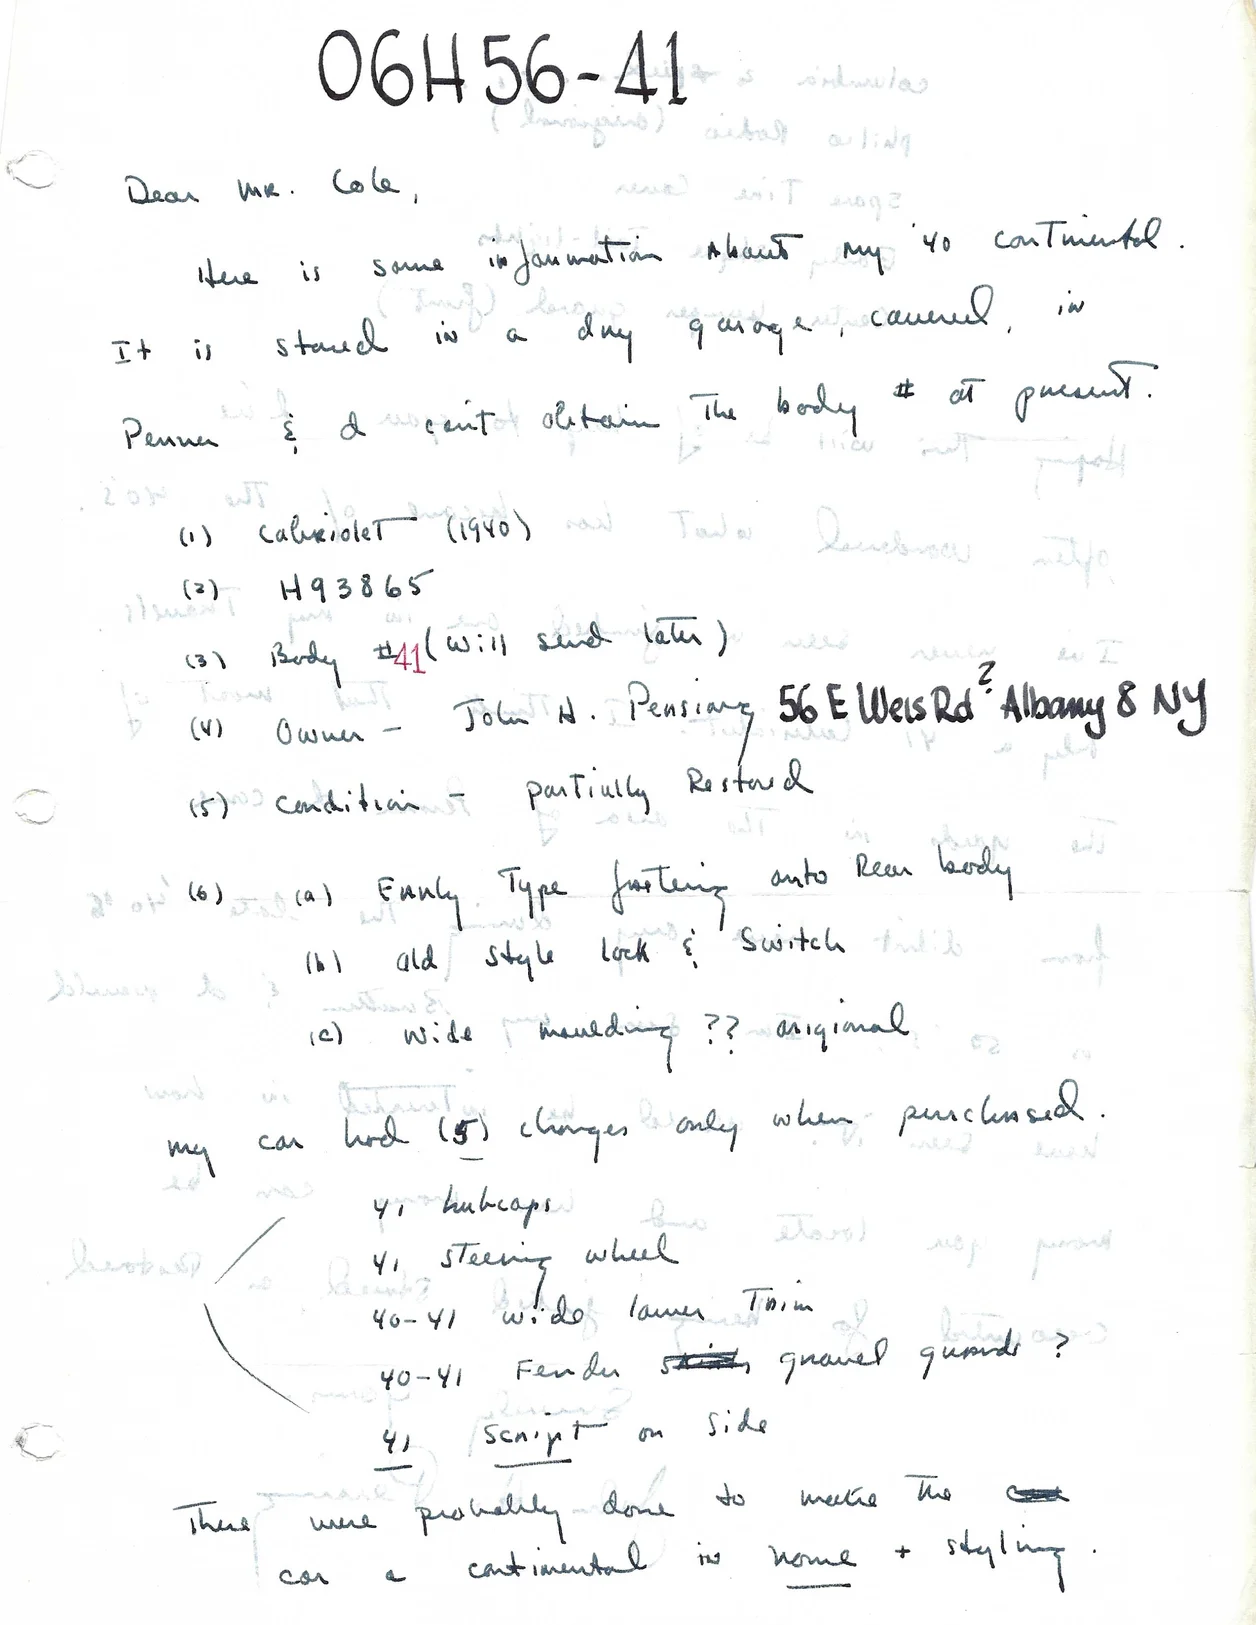 06H56-41
Dear Mr. Cole,
Here is some information about my '40 continental.
It is stored in a dry garage, covered, in
Penna & I can't obtain the body # at present.
(1) Cabriolet (1940)
(2) H93865
(3) Body #41 (Will send later)
(4) Owner - John H. Pensing 56 E Weis Rd? Albany 8 NY
(5) Condition - partially Restored
(6) (a) Early Type fastening onto Rear body
(b) old style lock & switch
(c) wide moulding ?? origional
my car had (5) changes only when purchased.
41 hubcaps
41 steering wheel
40-41 wide lower Trim
40-41 Fender gravel guards ?
41 script on side
These were probably done to make the
car a continental in name + styling.